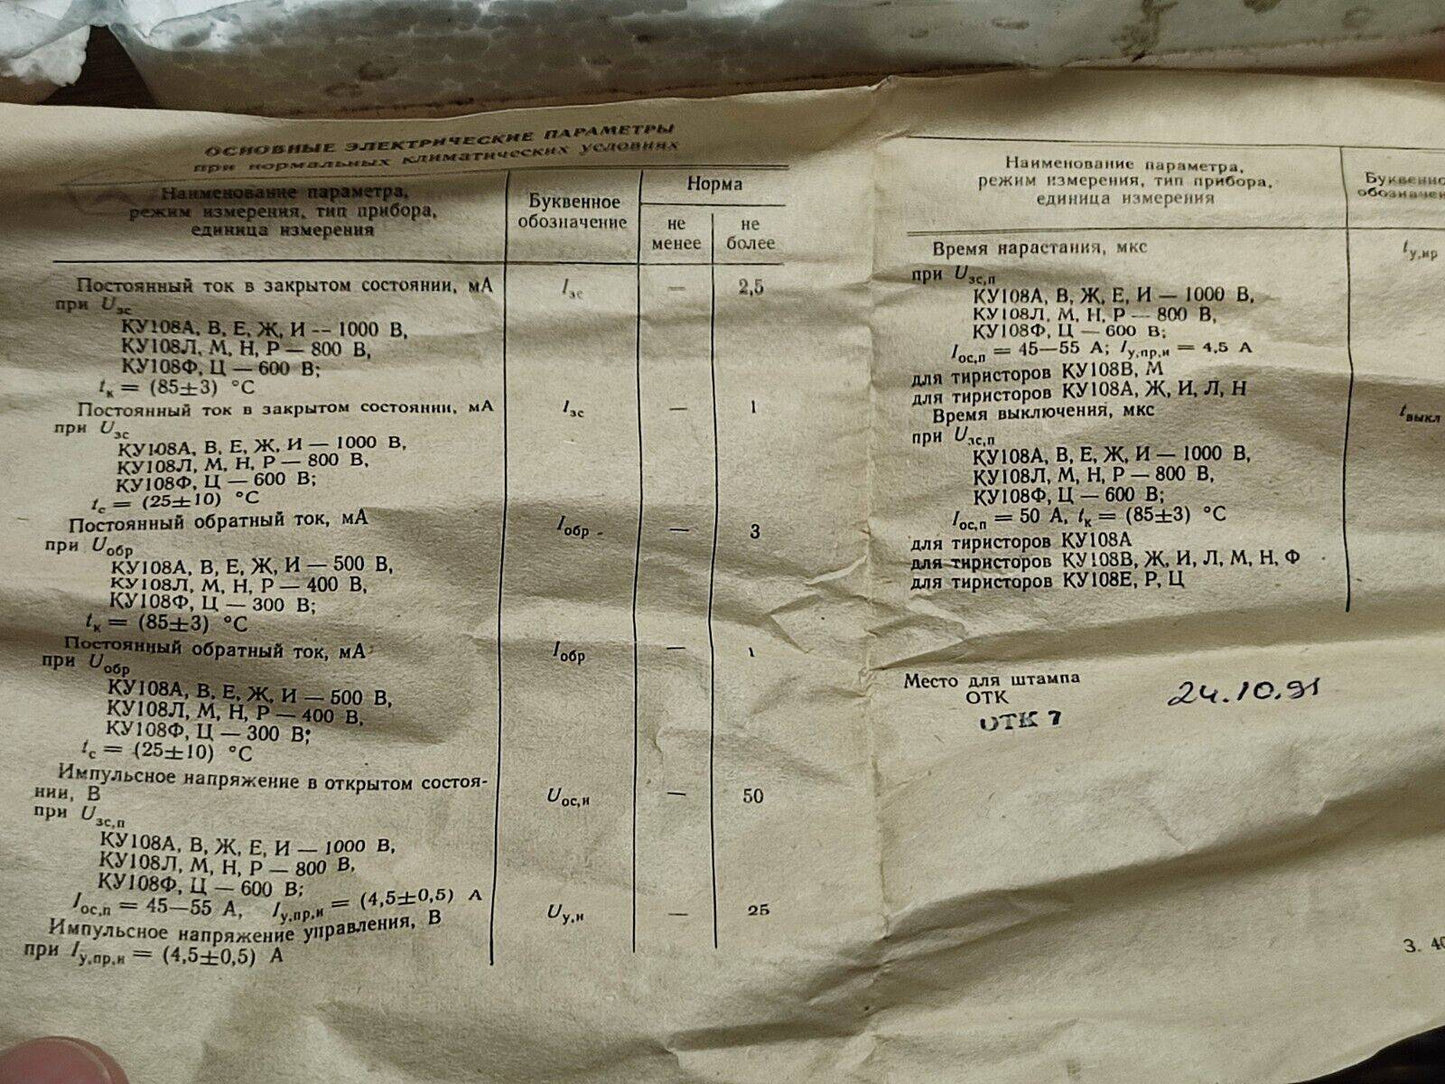 ОСНОВНЫЕ ЭЛЕКТРИЧЕСКИЕ ПАРАМЕТРЫ
при нормальных климатических условиях
Наименование параметра,
режим измерения, тип прибора,
единица измерения
Буквенное
обозначение
Норма
не
менее
не
более
Постоянный ток в закрытом состоянии, мА Iзс — 2,5
при Uзс
КУ108А, В, Е, Ж, И — 1000 В,
КУ108Л, М, Н, Р — 800 В,
КУ108Ф, Ц — 600 В;
tк = (85±3) °С
Постоянный ток в закрытом состоянии, мА Iзс — 1
при Uзс
КУ108А, В, Е, Ж, И — 1000 В,
КУ108Л, М, Н, Р — 800 В,
КУ108Ф, Ц — 600 В;
tс = (25±10) °С
Постоянный обратный ток, мА Iобр — 3
при Uобр
КУ108А, В, Е, Ж, И — 500 В,
КУ108Л, М, Н, Р — 400 В,
КУ108Ф, Ц — 300 В;
tк = (85±3) °С
Постоянный обратный ток, мА Iобр — 1
при Uобр
КУ108А, В, Е, Ж, И — 500 В,
КУ108Л, М, Н, Р — 400 В,
КУ108Ф, Ц — 300 В;
tс = (25±10) °С
Импульсное напряжение в открытом состоя-
нии, В Uос,и — 50
при Uзс,п
КУ108А, В, Ж, Е, И — 1000 В,
КУ108Л, М, Н, Р — 800 В,
КУ108Ф, Ц — 600 В;
Iос,п = 45—55 А, Iу,пр,и = (4,5±0,5) А
Импульсное напряжение управления, В Uу,и — 25
при Iу,пр,и = (4,5±0,5) А
Наименование параметра,
режим измерения, тип прибора,
единица измерения
Время нарастания, мкс
при Uзс,п
КУ108А, В, Ж, Е, И — 1000 В,
КУ108Л, М, Н, Р — 800 В,
КУ108Ф, Ц — 600 В;
Iос,п = 45—55 А; Iу,пр,и = 4,5 А
для тиристоров КУ108В, М
для тиристоров КУ108А, Ж, И, Л, Н
Время выключения, мкс tвыкл
при Uзс,п
КУ108А, В, Е, Ж, И — 1000 В,
КУ108Л, М, Н, Р — 800 В,
КУ108Ф, Ц — 600 В;
Iос,п = 50 А, tк = (85±3) °С
для тиристоров КУ108А
для тиристоров КУ108В, Ж, И, Л, М, Н, Ф
для тиристоров КУ108Е, Р, Ц
Место для штампа
ОТК
ОТК 7
24.10.91
З. 40